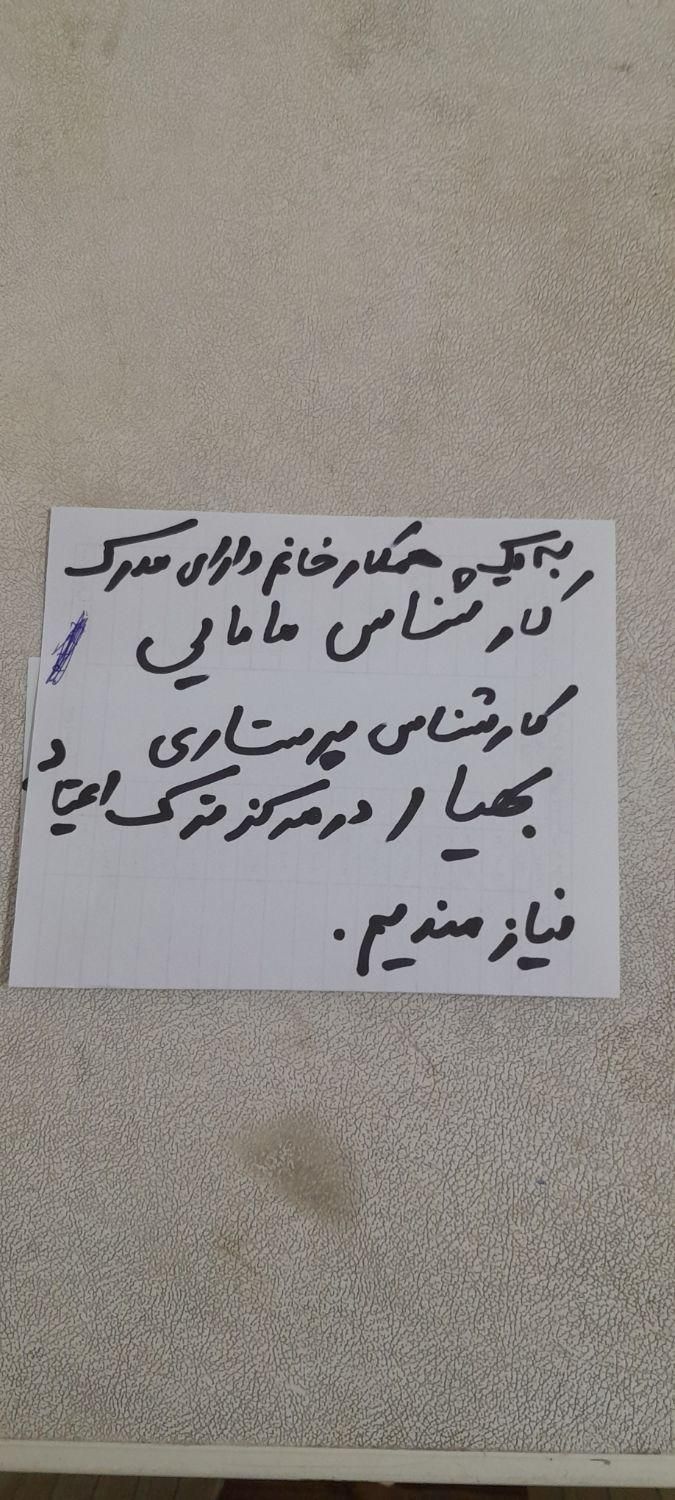 به یک همکار خانم دارای مدرک
کارشناس مامایی
کارشناس پرستاری
بهیار در مرکز ترک اعتیاد
نیازمندیم.